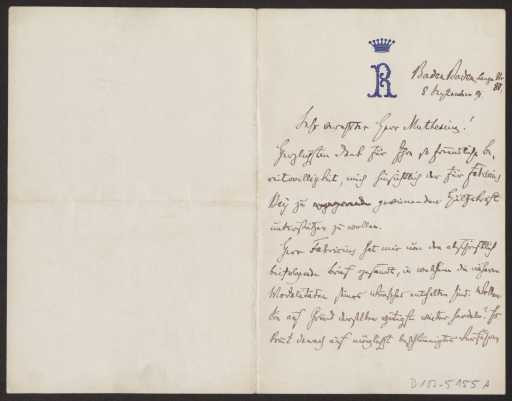 R
Baden Baden, Lange Str
88,
8 September 9.
Sehr verehrter Herr Muthesius!
Herzlichsten Dank für Ihre so freundliche Be-
reitwilligkeit, mich hinsichtlich der für Fabricius
Bey zu gewinnenden Hülfskraft
unterstützen zu wollen.
Herr Fabricius hat mir nun den abschriftlich
beifolgenden Brief gesandt, in welchem die näheren
Modalitäten seines Wunsches enthalten sind. Wollen
Sie auf Grund derselben gütigst weiter handeln? Es
kommt danach auf möglichst beschleunigtes Verfahren
D 102-5155 A